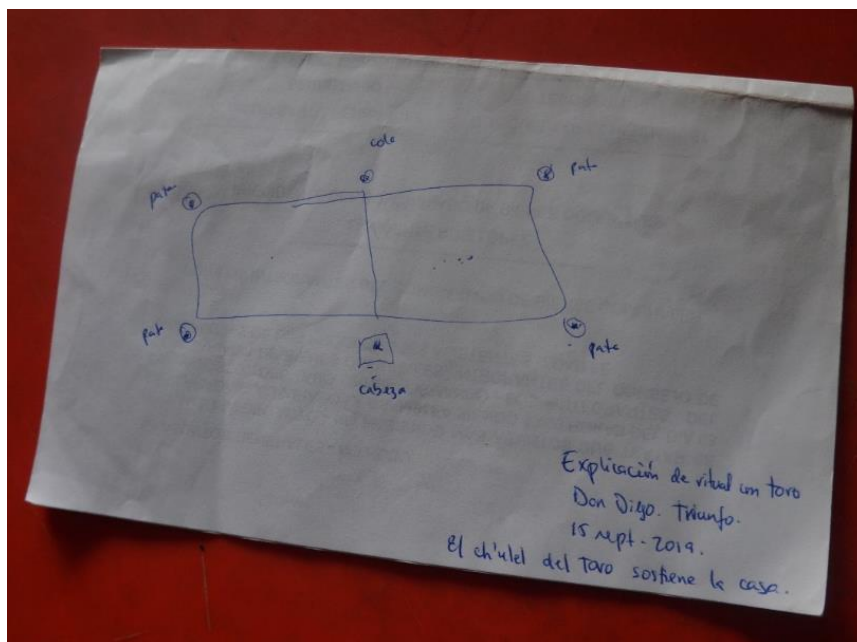 cola
pata
pata
pata
pata
cabeza
Explicación de ritual con toro
Don Diego. Triunfo.
15 sept. 2019.
El ch'ulel del toro sostiene la casa.